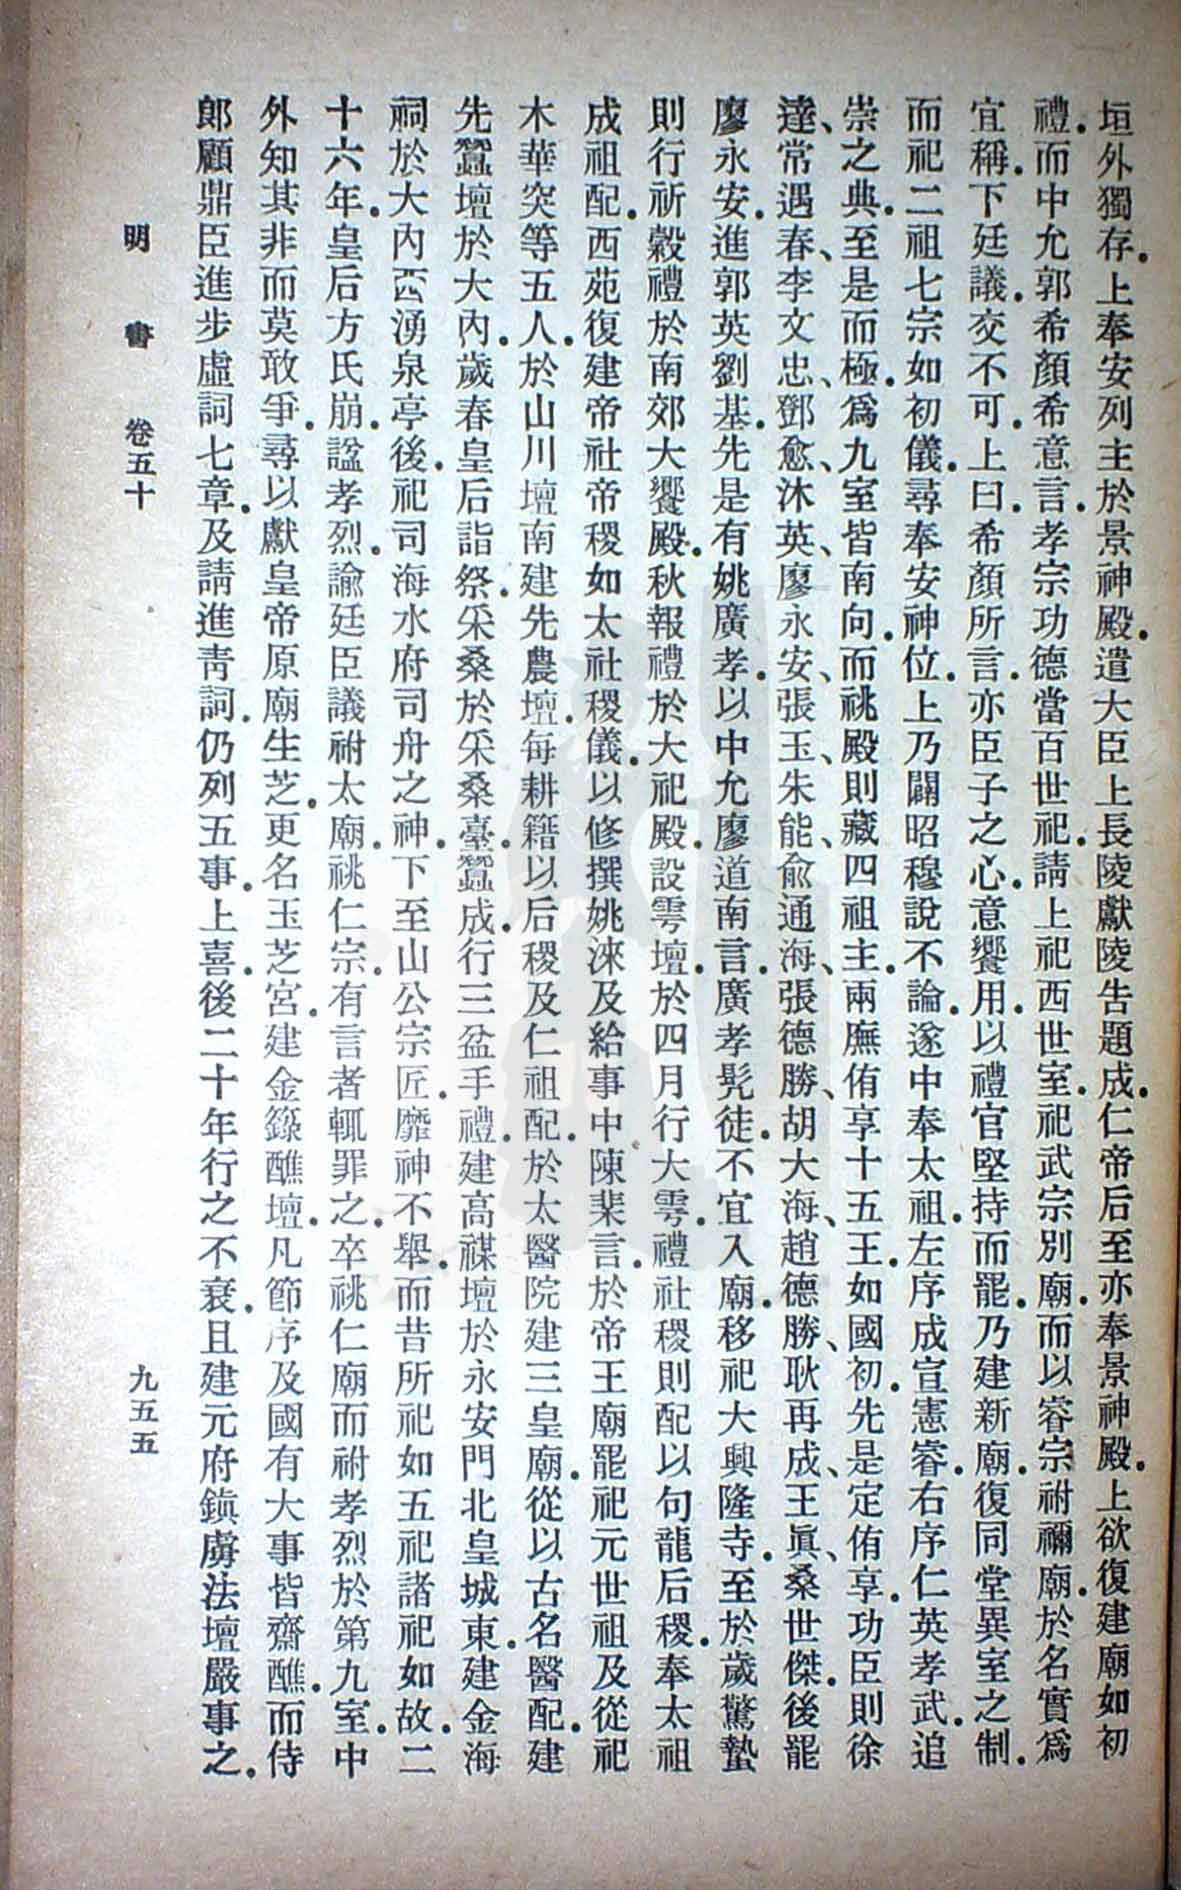 垣外獨存。上奉安列主於景神殿。遣大臣上長陵獻陵告題成。仁帝后至亦奉景神殿。上欲復建廟如初
禮。而中允郭希顏希意言。孝宗功德當百世祀。請上祀西世室。祀武宗別廟。而以睿宗祔禰廟。於名實爲
宜稱。下廷議。交不可。上曰。希顏所言。亦臣子之心。意饗用。以禮官堅持而罷。乃建新廟。復同堂異室之制。
而祀二祖七宗如初儀。尋奉安神位。上乃闢昭穆說不論。遂中奉太祖。左序成宣憲睿。右序仁英孝武。追
崇之典。至是而極。爲九室皆南向。而祧殿則藏四祖主。兩廡侑享十五王。如國初。先是定侑享。功臣則徐
達、常遇春、李文忠、鄧愈、沐英、廖永安、張玉、朱能、俞通海、張德勝、胡大海、趙德勝、耿再成、王眞、桑世傑。後罷
廖永安。進郭英劉基。先是有姚廣孝。以中允廖道南言。廣孝髡徒。不宜入廟。移祀大興隆寺。至於歲驚蟄
則行祈穀禮於南郊大饗殿。秋報禮於大祀殿。設雩壇。於四月行大雩。禮社稷則配以句龍后稷。奉太祖
成祖配。西苑復建帝社帝稷如太社稷儀。以修撰姚淶及給事中陳棐言。於帝王廟罷祀元世祖及從祀
木華突等五人。於山川壇南建先農壇。每耕籍以后稷及仁祖配。於太醫院建三皇廟。從以古名醫配。建
先蠶壇於大內。歲春皇后詣祭。采桑於采桑臺。蠶成。行三盆手禮。建高禖壇於永安門北皇城東。建金海
祠於大內西湧泉亭後。祀司海水府司舟之神。下至山公宗匠。靡神不舉。而昔所祀如五祀諸祀如故。二
十六年。皇后方氏崩。諡孝烈。諭廷臣議祔太廟。祧仁宗。有言者輒罪之。卒祧仁廟而祔孝烈於第九室。中
外知其非而莫敢爭。尋以獻皇帝原廟生芝。更名玉芝宮。建金籙醮壇。凡節序及國有大事皆齋醮。而侍
郎顧鼎臣進步虛詞七章。及請進靑詞。仍列五事。上喜。後二十年行之不衰。且建元府鎭虜法壇嚴事之。
明書 卷五十 九五五